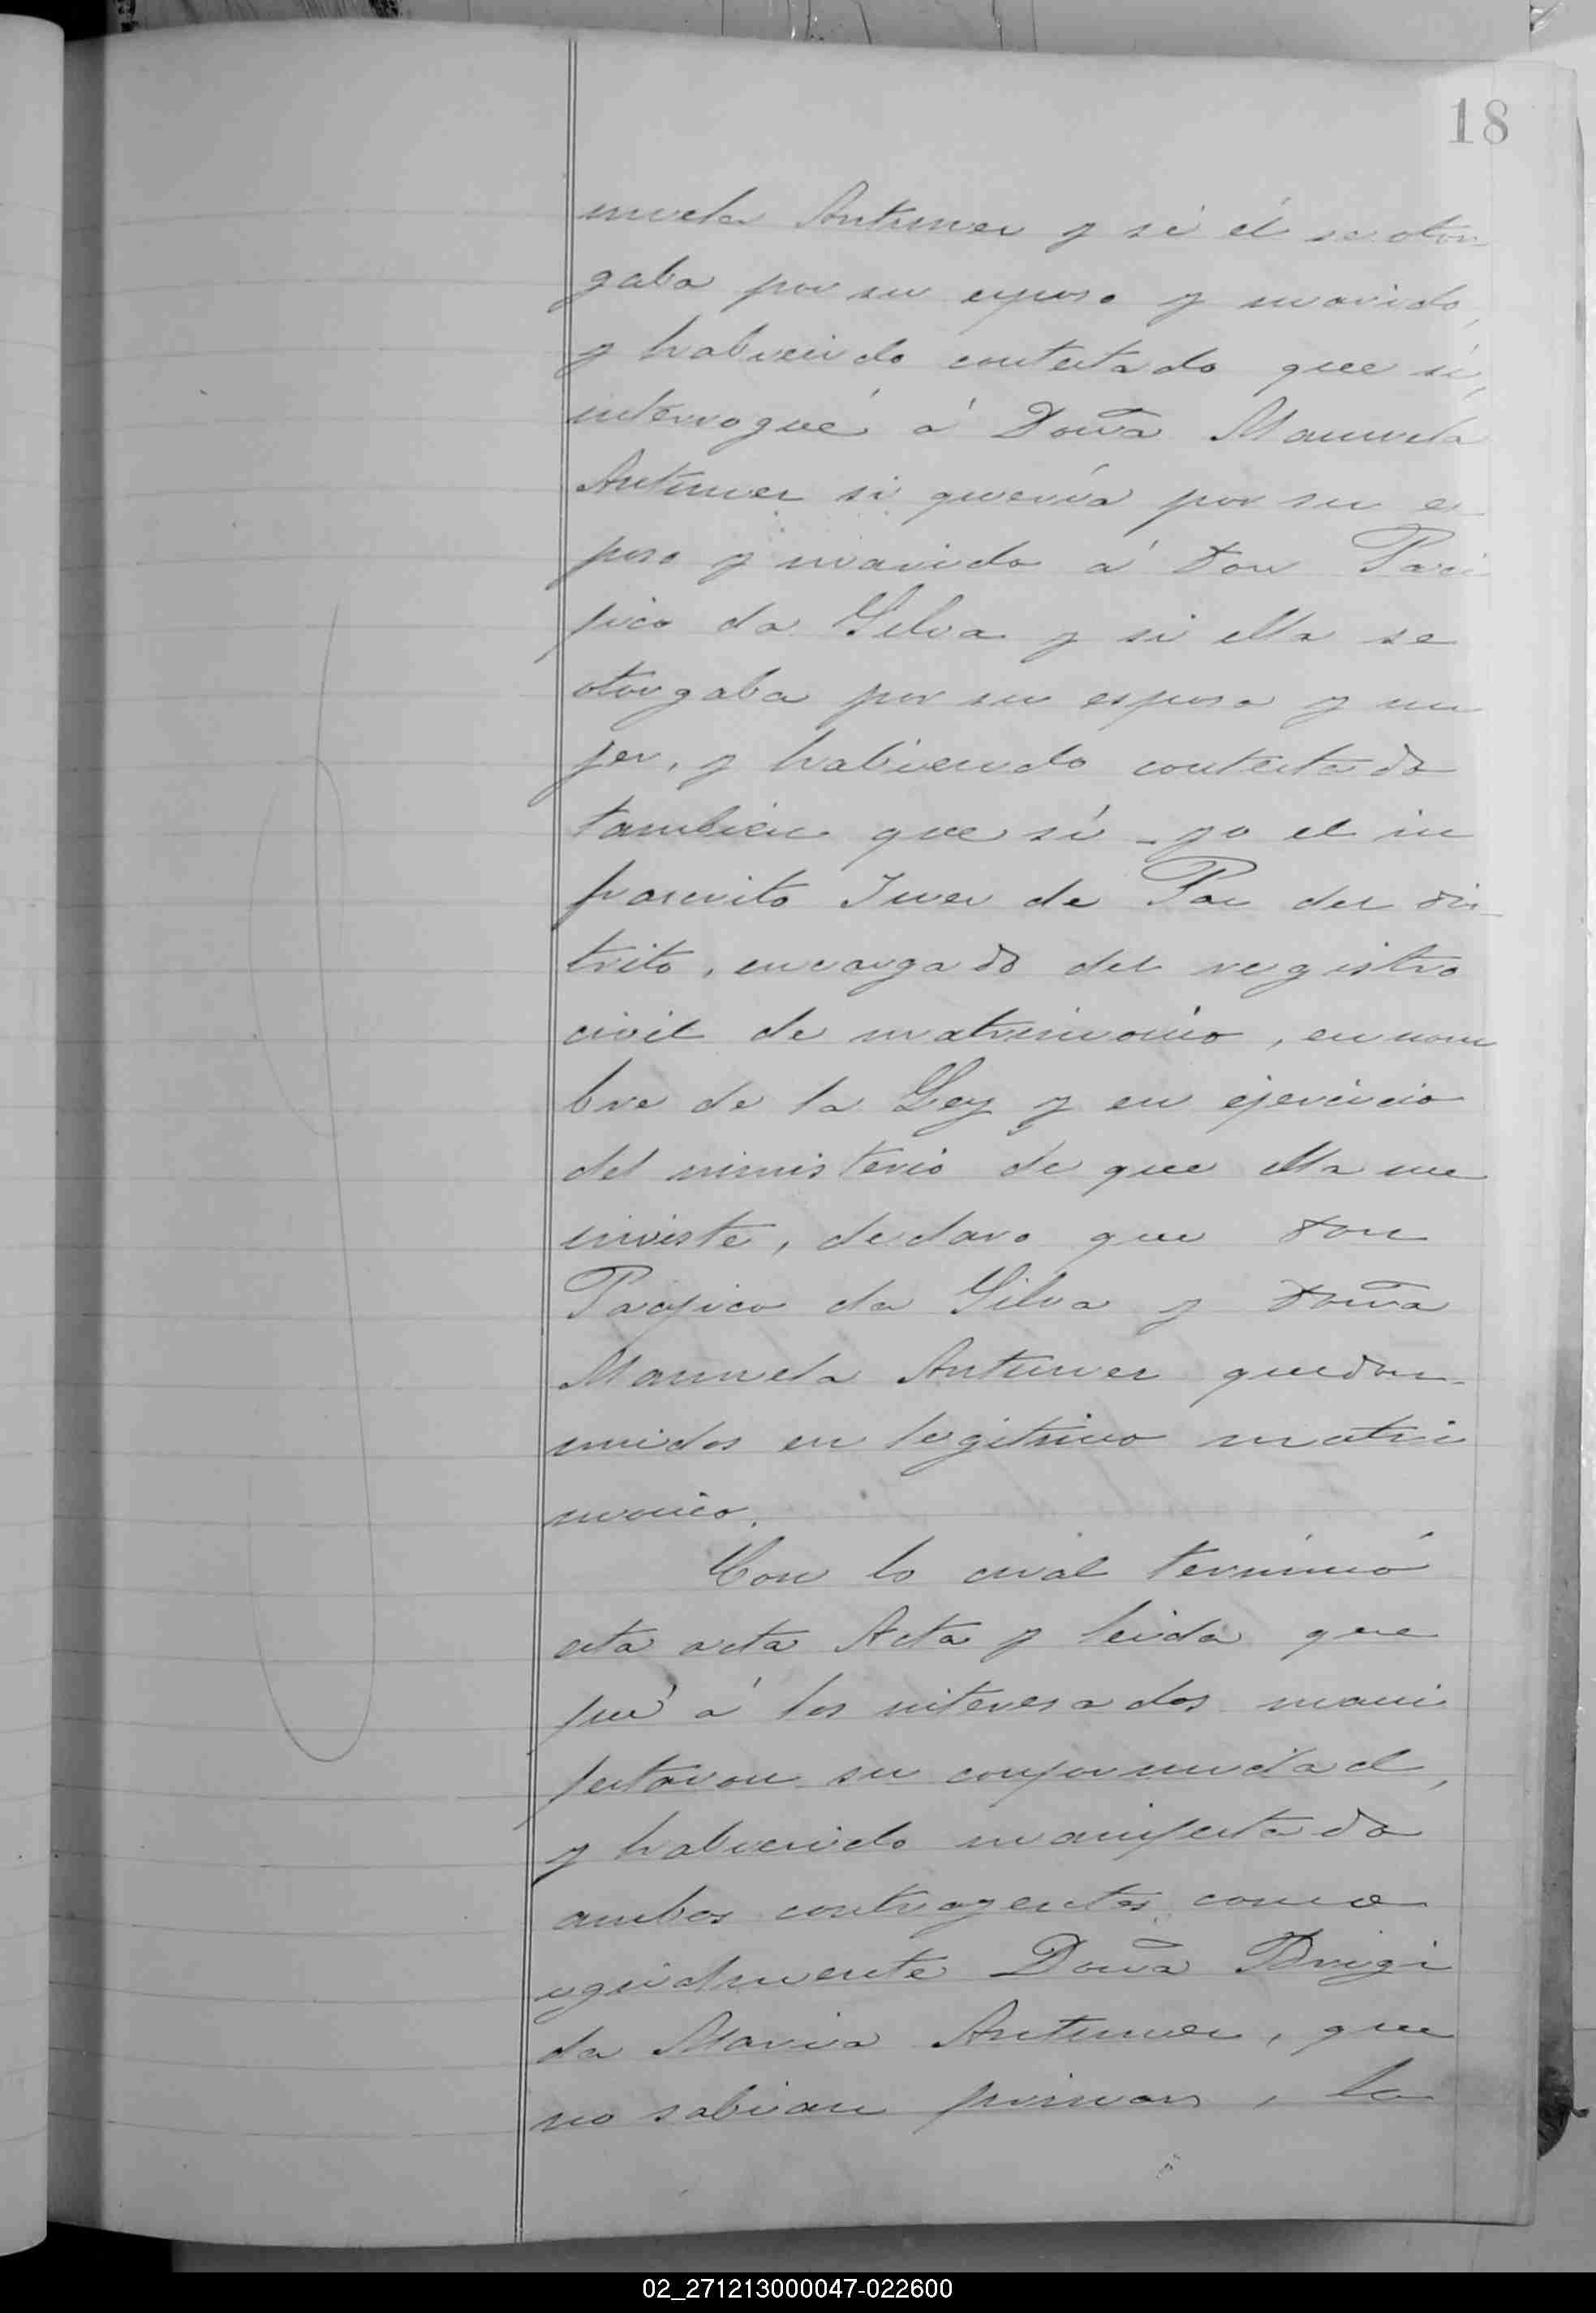 18
nuela Antunez y si él se otor
gaba por su esposo y marido,
y habiendo contestado que sí,
interrogué á Doña Manuela
Antunez si quería por su es
poso y marido á Don Pací
fico da Silva y si ella se
otorgaba por su esposa y mu
jer, y habiendo contestado
también que sí - yo el in
frascrito Juez de Paz del dis-
trito, encargado del registro
civil de matrimonio, en nom
bre de la Ley y en ejercicio
del ministerio de que ella me
inviste, declaro que Don
Pacífico da Silva y Doña
Manuela Antunez quedan
unidos en legítimo matri
monio.
Con lo cual terminó
esta acta Acta y leida que
fué á los interesados mani
festaron su conformidad,
y habiendo manifestado
ambos contrayentes como
igualmente Doña Brígi
da Maria Antunez, que
no sabian firmar, lo
02_271213000047-022600